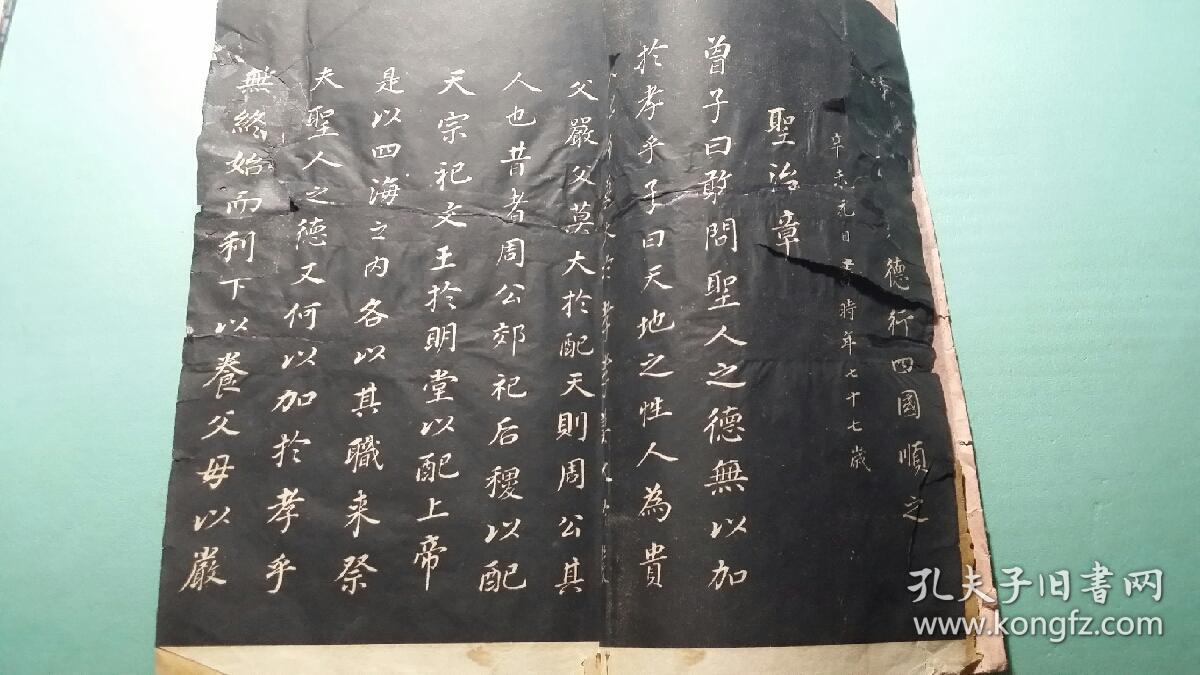 德行四國順之
辛未元日書時年七十七歲
聖治章
曾子曰敢問聖人之德無以加
於孝乎子曰天地之性人為貴
父嚴父莫大於配天則周公其
人也昔者周公郊祀后稷以配
天宗祀文王於明堂以配上帝
是以四海之內各以其職来祭
夫聖人之德又何以加於孝乎
無終始而利下以養父母以嚴
孔夫子旧书网
www.kongfz.com